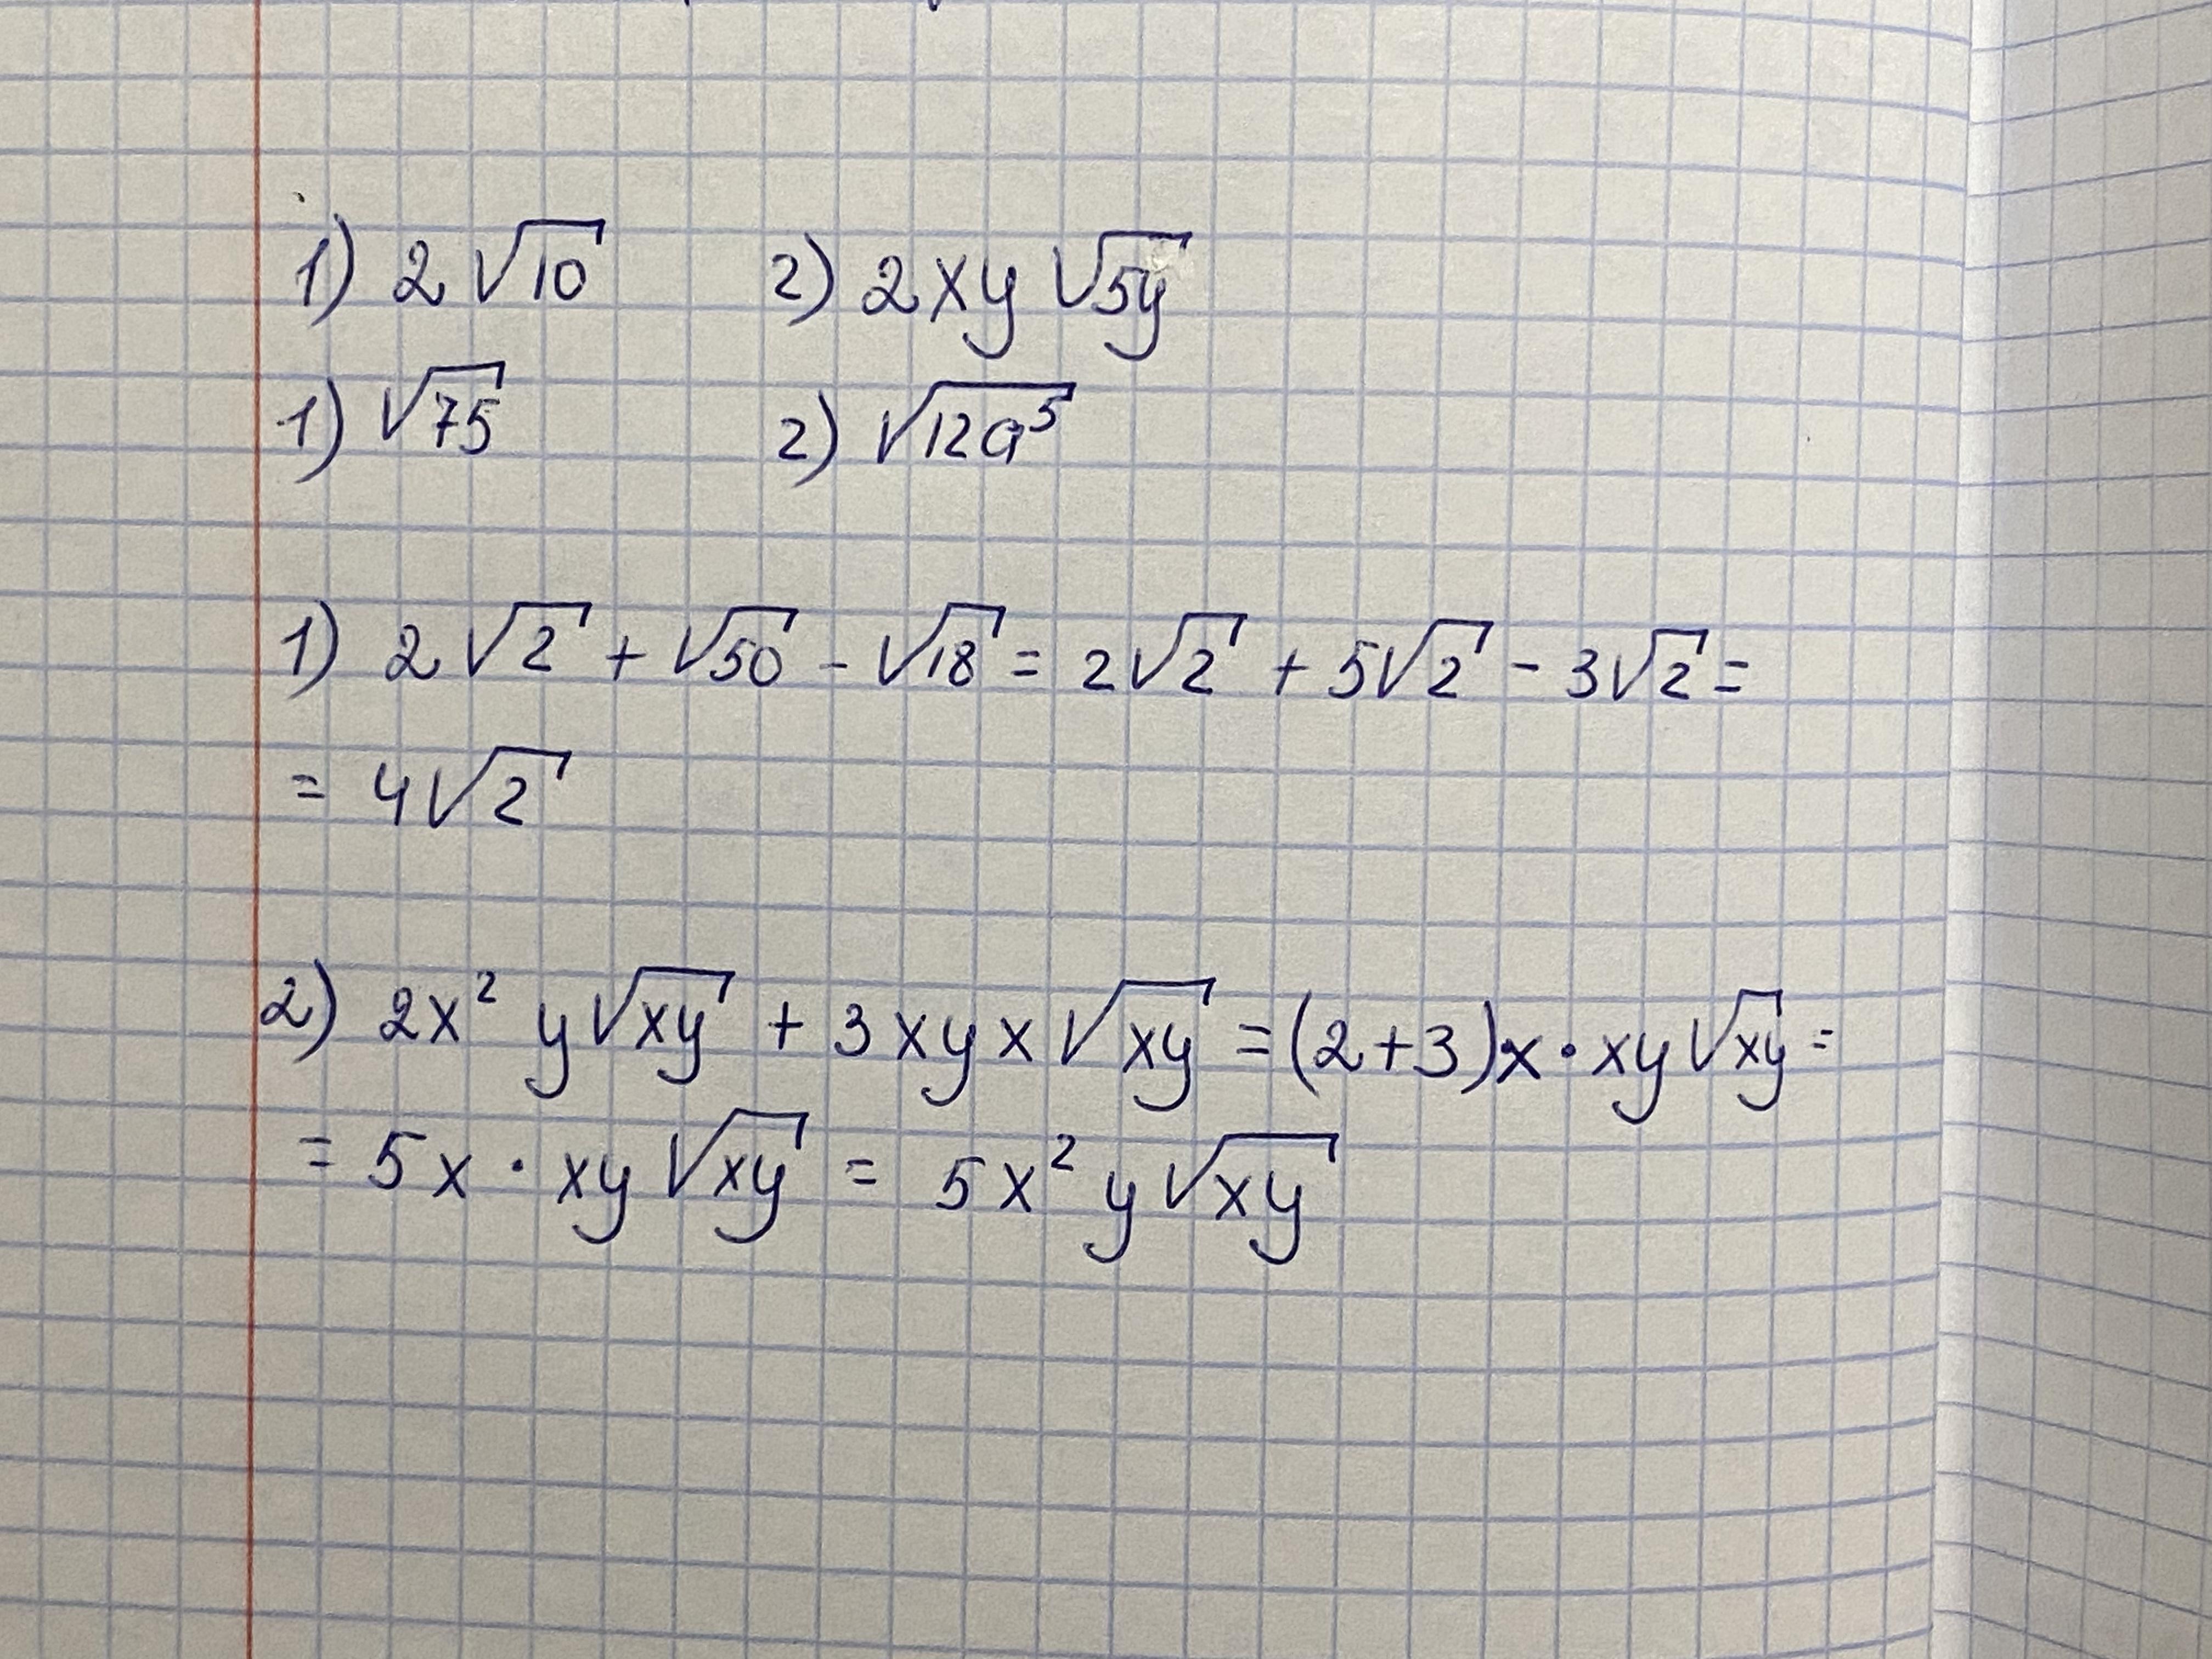 1) 2√10 2) 2xy√5y
1) √75 2) √12a⁵
1) 2√2 + √50 - √18 = 2√2 + 5√2 - 3√2 =
= 4√2
2) 2x² y√xy + 3xyx√xy = (2+3)·x·xy√xy =
= 5x · xy√xy = 5x² y√xy